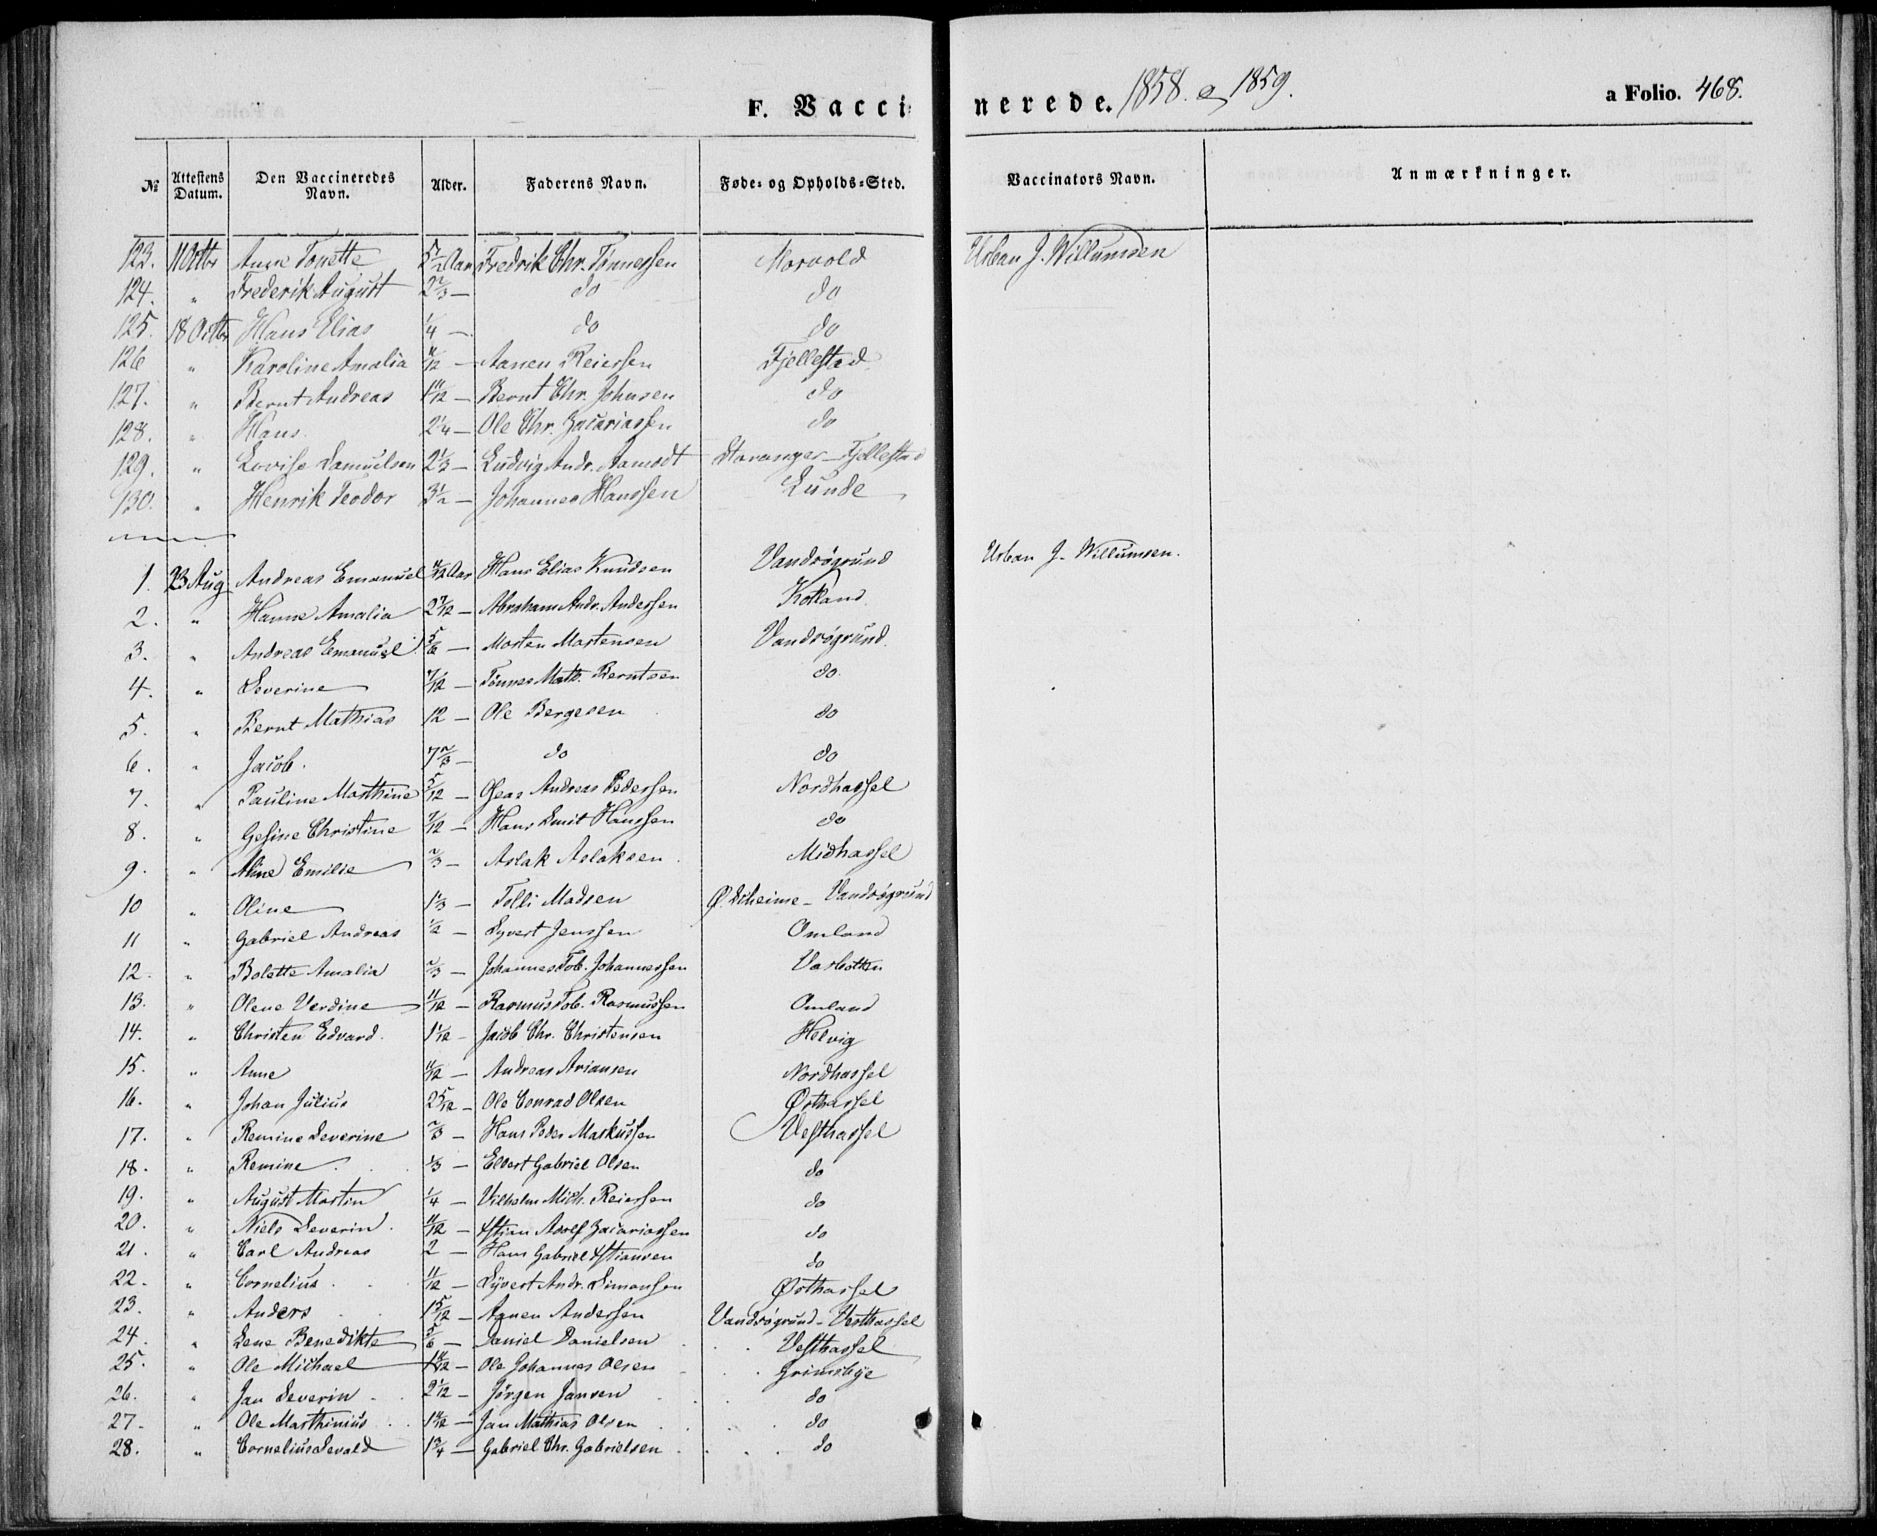 F. Vaccinerede. 1858. og 1859. a Folio. 468.
No Attestens Datum. Den Vaccineredes Navn. Alder. Faderens Navn. Føde- og Opholds-Sted. Vaccinators Navn. Anmærkninger.
123. 11 Octbr Anne Tonette 5 1/2 Aar Fredrik Chr. Tønnessen Norvold Urban J. Willumsen
124. " Frederik August 2 2/3 — do do
125. 18 Octbr Hans Elias 1/4 — do do
126 " Karoline Amalia 11/12 — Aanen Reiersen Fjellestad
127. " Bernt Andreas 1 11/12 — Bernt Chr. Johnsen do
128. " Hans. 2 1/4 — Ole Chr. Zacariassen do
129. " Lovise Samuelsen 2 1/3 — Ludvig Andr. Aamodt Stavanger — Fjellestad
130. " Henrik Teodor 3 1/2 — Johannes Hanssen Lunde
1. 23 Aug Andreas Emanuel /12 Aar Hans Elias Knudsen Vandrøgrund Urban J. Willumsen.
2. " Hanne Amalia 2 7/12 — Abraham Andr. Anderssen Kotland
3. " Andreas Emanuel 5/6 — Morten Mortensen Vandrøgrund
4. " Severine 7/12 — Tønnes Math. Berntsen do
5. " Bernt Mathias 12 — Ole Bergesen do
6. " Jacob. 7 2/3 — do do
7. " Pauline Marthine 5/12 — Andreas Pederssen Nordhassel
8. " Gesine Christine 7/12 — Hans Smit Hanssen do
9. " Aline Emilie 2/3 — Aslak Aslaksen Midhassel
10 " Oline 1 2/3 — Tolli Madsen Ø. Skeime — Vandrøgrund
11 " Gabriel Andreas 1/2 — Syvert Jenssen Omland
12. " Bolette Amalia 2/3 — Johannes Tob. Johannessen Varbotten
13. " Olene Verdine 11/12 — Rasmus Tob. Rasmussen Omland
14. " Christen Edvard. 1 1/12 — Jacob Chr. Christensen Helvig
15. " Anne 11/12 — Andreas Ariansen Nordhassel
16. " Johan Julius 2 5/12 — Ole Conrad Olsen Østhassel
17. " Remine Severine 2/3 — Hans Peder Markussen Vesthassel
18. " Remine 1/3 — Elvert Gabriel Olsen do
19. " August Martin 1/4 — Vilhelm Mich. Reierssen do
20. " Niels Severin. 11/12 — Xstian Adolf Zacariassen do
21. " Carl Andreas 2 — Hans Gabriel Xstiansen do
22. " Cornelius 11/12 — Syvert Andr. Simonsen Østhassel
23. " Anders 1 5/12 — Aanen Anderssen Vandrøgrund — Vesthassel
24. " Lene Benedikte 5/6 — Daniel Danielsen Vesthassel
25. " Ole Michael Ole Johannes Olsen Grimsbye
26. " Jan Severin 2 1/12 — Jørgen Jansen do
27. " Ole Marthinius Jan Mathias Olsen do
28. " Cornelius Sevald 1 3/4 — Gabriel Chr. Gabrielsen do